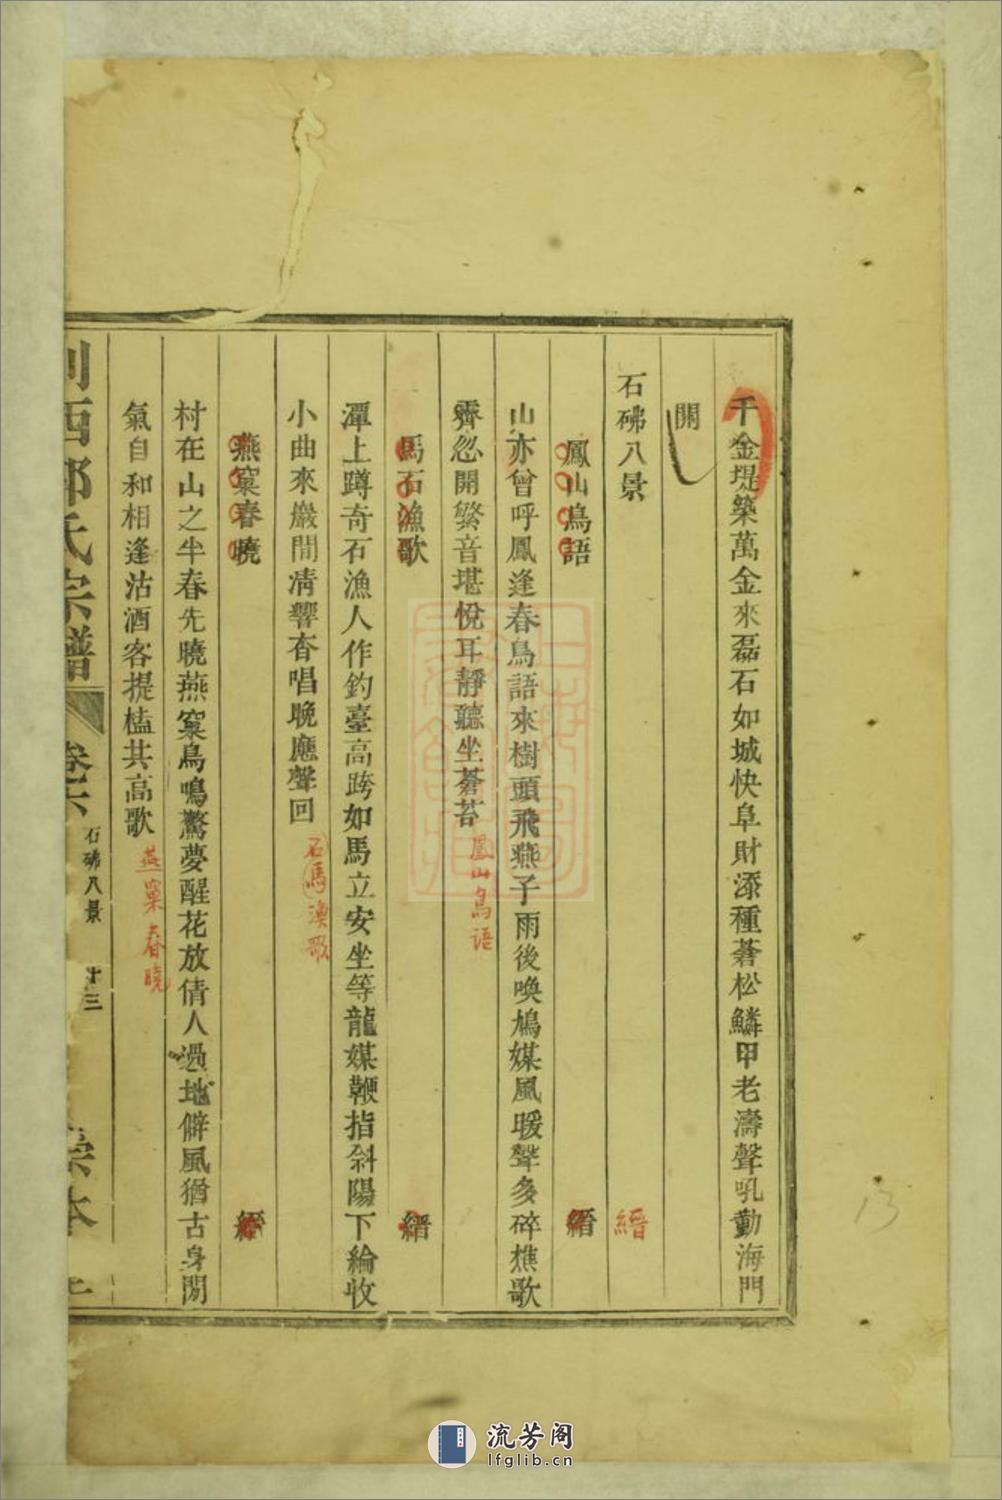 千金堤築萬金來磊石如城快阜財添種蒼松鱗甲老濤聲吼動海門
開
石砩八景 縉
鳳山鳥語 縉
山亦曾呼鳳逢春鳥語來樹頭飛燕子雨後喚鳩媒風暖聲多碎樵歌
霽忽開繁音堪悅耳靜聽坐蒼苔 鳳山鳥语
馬石漁歌 縉
潭上蹲奇石漁人作釣臺高跨如馬立安坐等龍媒鞭指斜陽下綸收
小曲來巖間清響杳唱晚應聲回 石馬漁歌
燕窠春曉 縉
村在山之半春先曉燕窠鳥鳴驚夢醒花放倩人過地僻風猶古身閒
氣自和相逢沽酒客提榼共高歌 燕窠春曉
西郭氏宗譜 卷六 石砩八景 十三
13
流芳阁
lfglib.cn